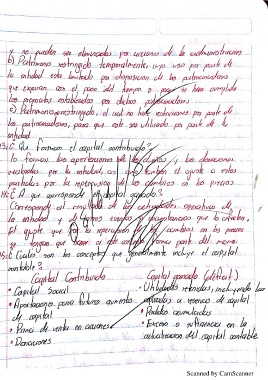 y no pueden ser eliminadas por acciones de la administracion
b) Patrimonio restringido temporalmente, cuyo uso por parte de
la entidad esta limitado por disposicion de los patrocinadores
que expiran con el paso del tiempo o porque se han cumplido
los propositos establecidos por dichos patrocinadores
c) Patrimonio no restringido, el cual no tiene restricciones por parte de
los patrocinadores, para que este sea utilizado por parte de la
entidad
¿ Que forman el capital contribuido?
Lo forman las aportaciones de los dueños y las donaciones
recibidas por la entidad, asi como tambien el ajuste a estas
partidas por la repercusion de los cambios en los precios
¿ A que corresponde el capital ganado?
Corresponde al resultado de las actividades operativas de
la entidad y de otros eventos o circunstancias que le afecten.
El ajuste que por la repercusion de los cambios en los precios
se tenga que hacer a este concepto forma parte del mismo.
¿ Cuales son los conceptos que generalmente incluye el capital
contable?
Capital Contribuido
• Capital Social
• Aportaciones para futuros aumentos
de capital
• Prima de venta en acciones
• Donaciones
Capital ganado (deficit)
• Utilidades retenidas, incluyendo las
aplicadas a reserva de capital
• Perdidas acumuladas
• Exceso o insuficiencia en la
actualizacion del capital contable
Scanned by CamScanner